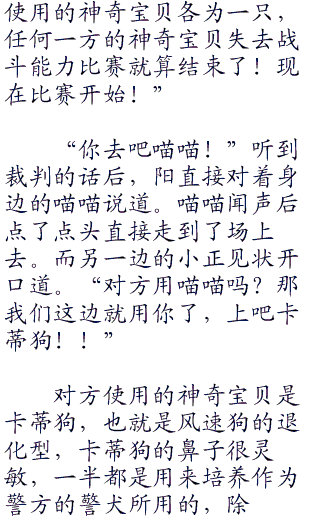 使用的神奇宝贝各为一只，
任何一方的神奇宝贝失去战
斗能力比赛就算结束了！现
在比赛开始！”
“你去吧喵喵！”听到
裁判的话后，阳直接对着身
边的喵喵说道。喵喵闻声后
点了点头直接走到了场上
去。而另一边的小正见状开
口道。“对方用喵喵吗？那
我们这边就用你了，上吧卡
蒂狗！！”
对方使用的神奇宝贝是
卡蒂狗，也就是风速狗的退
化型，卡蒂狗的鼻子很灵
敏，一半都是用来培养作为
警方的警犬所用的，除